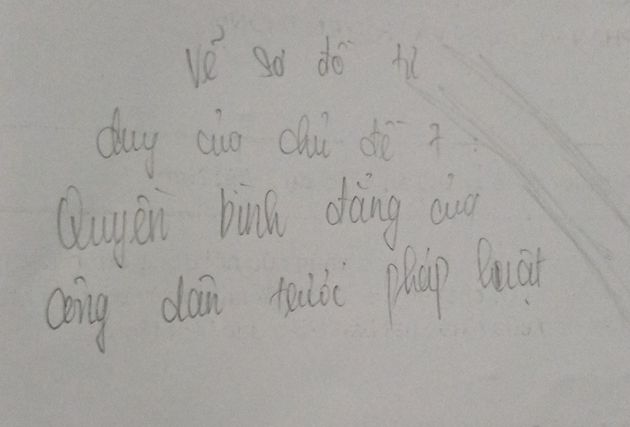 Vẽ sơ đồ tư
duy của chủ đề 7:
Quyền bình đẳng của
công dân trước pháp luật